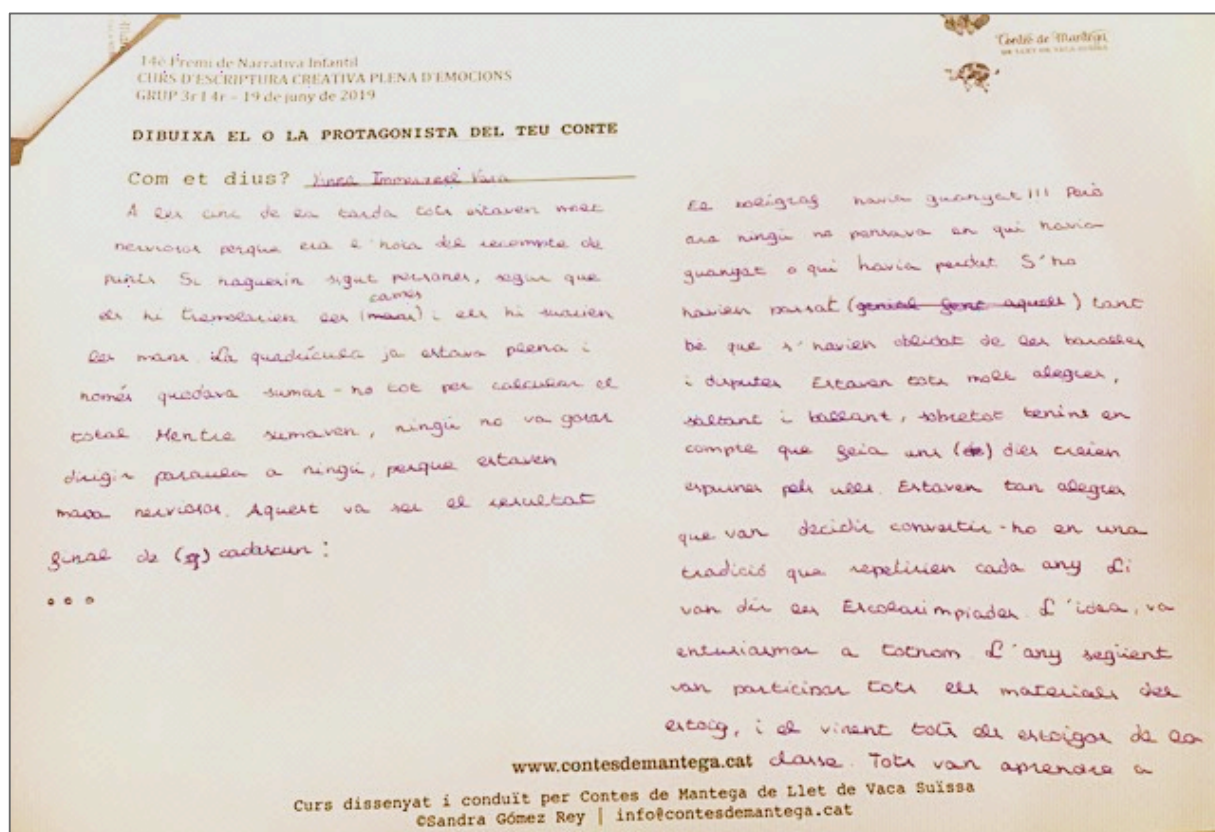 14è Premi de Narrativa Infantil
CURS D'ESCRIPTURA CREATIVA PLENA D'EMOCIONS
GRUP 3r i 4r – 19 de juny de 2019
Contes de Mantega
DE LLET DE VACA SUÏSSA
DIBUIXA EL O LA PROTAGONISTA DEL TEU CONTE
Com et dius?
A les cinc de la tarda tots estaven molt
nerviosos perque era l'hora del recompte de
punts Si haguessin sigut persones, segur que
els hi tremolarien les (mans) cames i els hi suarien
les mans. La quadrícula ja estava plena i
només quedava sumar-ho tot per calcular el
total Mentre sumaven, ningú no va gosar
dirigir paraula a ningú, perque estaven
massa nerviosos. Aquest va ser el resultat
final de cadascun:
...
El bolígraf havia guanyat!!! Però
ara ningú no pensava en qui havia
guanyat o qui havia perdut S'ho
havien passat (genial fent aquell) tant
bé que s'havien oblidat de les baralles
i disputes Estaven tots molt alegres,
saltant i ballant, sobretot tenint en
compte que feia uns (de) dies treien
espurnes pels ulls. Estaven tan alegres
que van decidir convertir-ho en una
tradició que repetirien cada any Li
van dir les Escolarimpiades. L'idea, va
entusiasmar a tothom L'any següent
van participar tots els materials del
estoig, i el vinent tots els estoigos de la
classe. Tots van aprendre a
www.contesdemantega.cat
Curs dissenyat i conduït per Contes de Mantega de Llet de Vaca Suïssa
©Sandra Gómez Rey | info@contesdemantega.cat